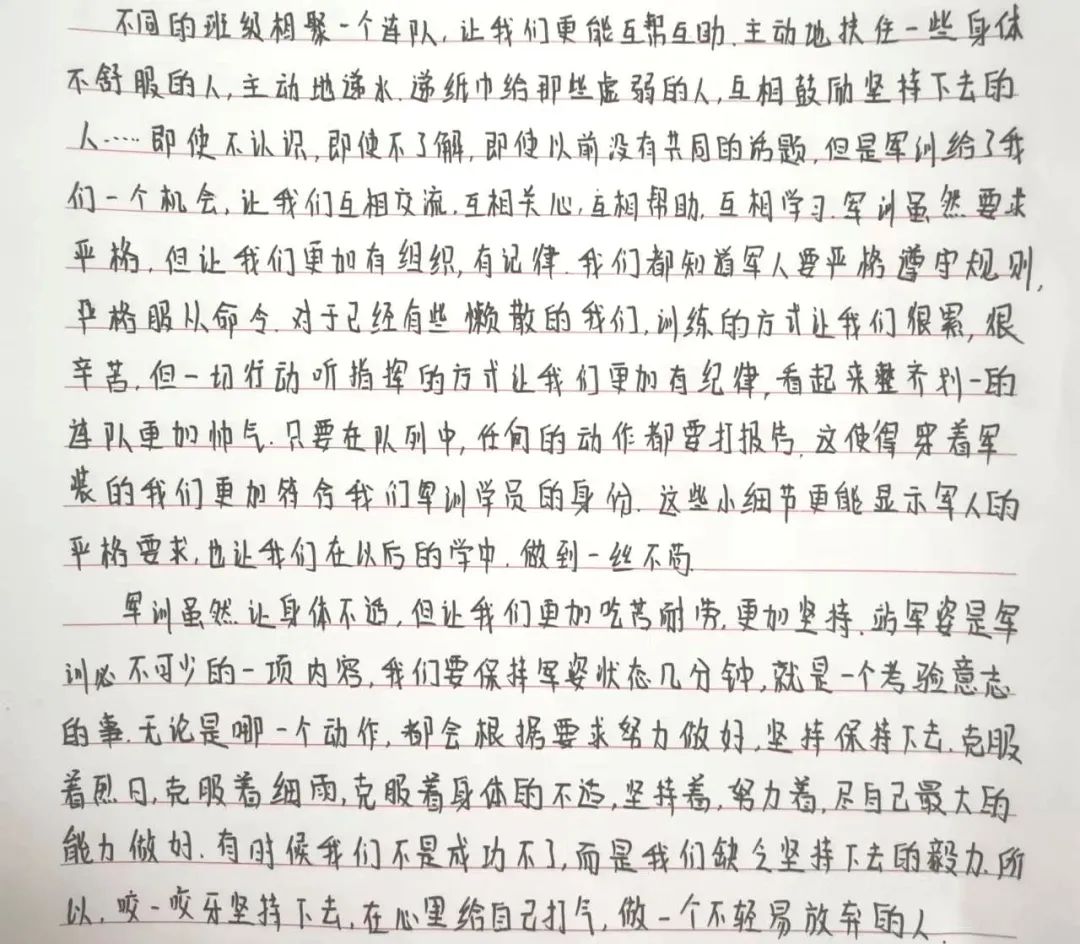 不同的班级相聚一个连队,让我们更能互帮互助.主动地扶住一些身体
不舒服的人,主动地递水.递纸巾给那些虚弱的人,互相鼓励坚持下去的
人……即使不认识,即使不了解,即使以前没有共同的话题,但是军训给了我
们一个机会,让我们互相交流.互相关心,互相帮助,互相学习.军训虽然要求
严格,但让我们更加有组织,有记律.我们都知道军人要严格遵守规则,
严格服从命令.对于已经有些懒散的我们,训练的方式让我们很累,很
辛苦,但一切行动听指挥的方式让我们更加有纪律,看起来整齐划一的
连队更加帅气.只要在队列中,任何的动作都要打报告.这使得穿着军
装的我们更加符合我们军训学员的身份.这些小细节更能显示军人的
严格要求,也让我们在以后的学中.做到一丝不苟.
军训虽然让身体不适,但让我们更加吃苦耐劳,更加坚持.站军姿是军
训必不可少的一项内容,我们要保持军姿状态几分钟,就是一个考验意志
的事.无论是哪一个动作,都会根据要求努力做好,坚持保持下去.克服
着烈日,克服着细雨,克服着身体的不适,坚持着,努力着,尽自己最大的
能力做好.有时候我们不是成功不了,而是我们缺乏坚持下去的毅力.所
以,咬一咬牙坚持下去,在心里给自己打气,做一个不轻易放弃的人.